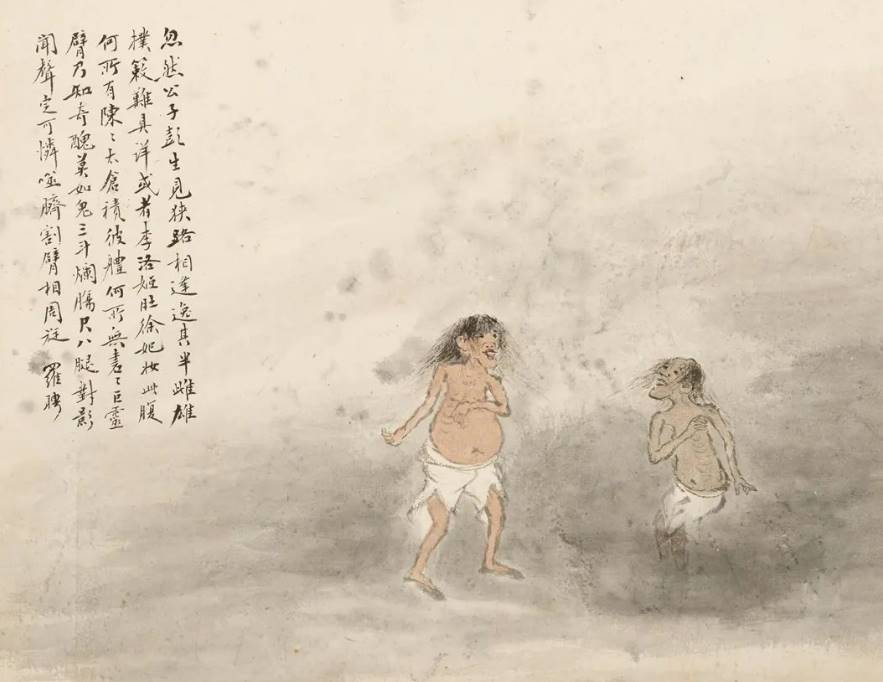 忽然公子彭生見狹路相逢逸其半雌雄
撲簌難具詳或者李洛姬旺徐妃妝此腹
何所有陳〻太倉積彼體何所無書〻巨靈
臂乃知奇醜莫如鬼三斗爛腸尺八腿對影
聞聲定可憐噬臍割臂相周旋 羅聘